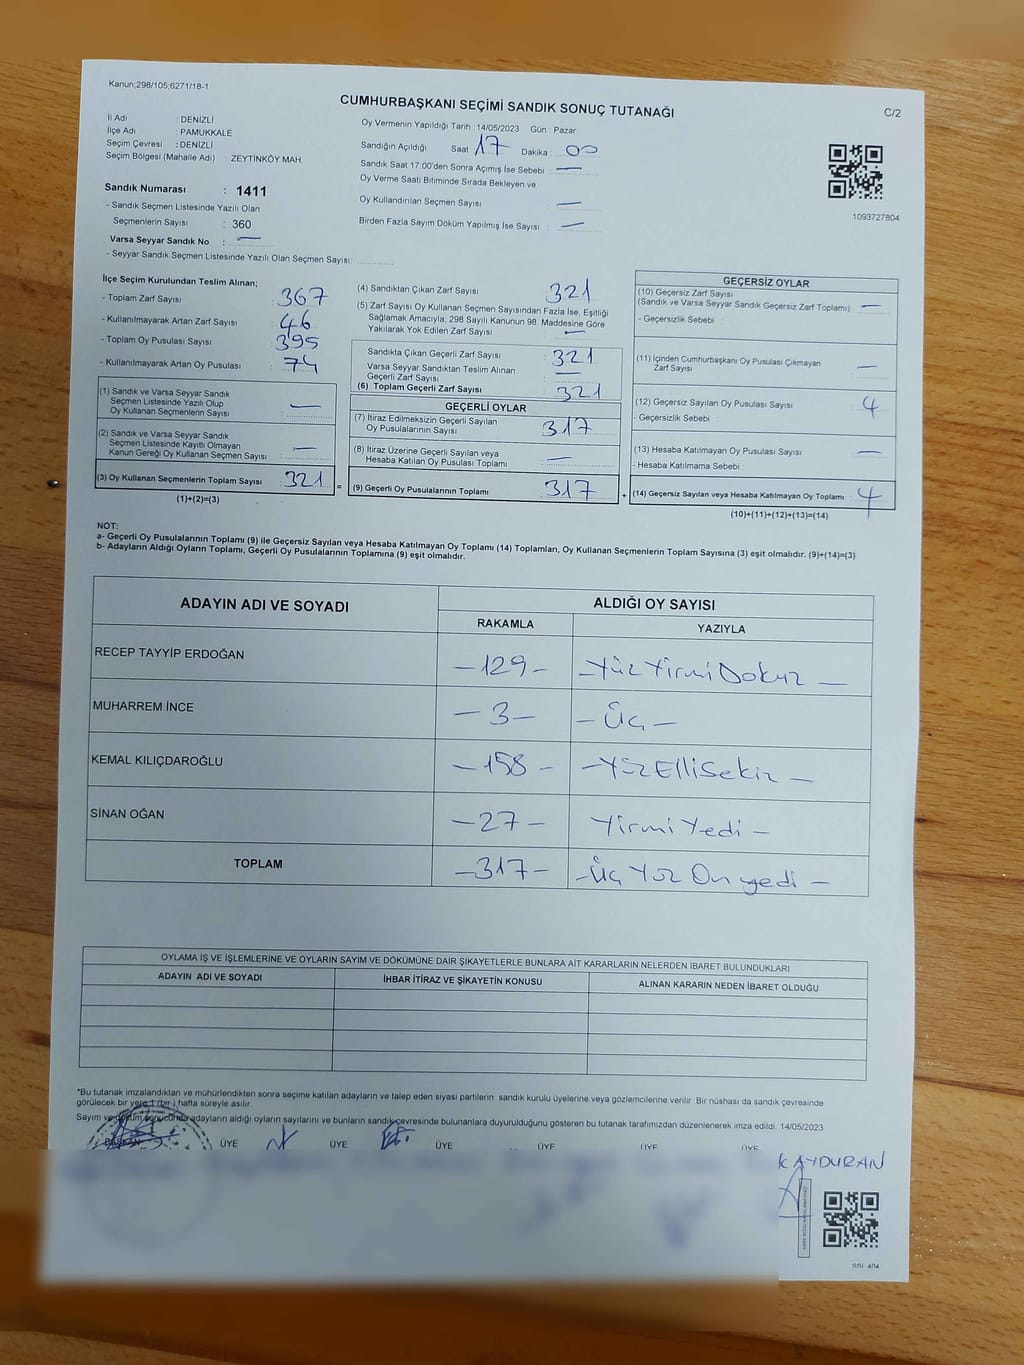 Kanun:298/105;6271/18-1
CUMHURBAŞKANI SEÇİMİ SANDIK SONUÇ TUTANAĞI
C/2
İl Adı : DENİZLİ
İlçe Adı : PAMUKKALE
Seçim Çevresi : DENİZLİ
Seçim Bölgesi (Mahalle Adı) : ZEYTİNKÖY MAH.
Sandık Numarası : 1411
- Sandık Seçmen Listesinde Yazılı Olan
Seçmenlerin Sayısı : 360
Varsa Seyyar Sandık No : —
- Seyyar Sandık Seçmen Listesinde Yazılı Olan Seçmen Sayısı:
Oy Vermenin Yapıldığı Tarih : 14/05/2023 Gün : Pazar
Sandığın Açıldığı Saat 17 Dakika : 00
Sandık Saat 17:00'den Sonra Açımış İse Sebebi : —
Oy Verme Saati Bitiminde Sırada Bekleyen ve
Oy Kullandırılan Seçmen Sayısı : —
Birden Fazla Sayım Döküm Yapılmış İse Sayısı : —
1093727804
İlçe Seçim Kurulundan Teslim Alınan;
- Toplam Zarf Sayısı : 367
- Kullanılmayarak Artan Zarf Sayısı : 46
- Toplam Oy Pusulası Sayısı : 395
- Kullanılmayarak Artan Oy Pusulası : 74
(1) Sandık ve Varsa Seyyar Sandık
Seçmen Listesinde Yazılı Olup
Oy Kullanan Seçmenlerin Sayısı : —
(2) Sandık ve Varsa Seyyar Sandık
Seçmen Listesinde Kayıtlı Olmayan
Kanun Gereği Oy Kullanan Seçmen Sayısı : —
(3) Oy Kullanan Seçmenlerin Toplam Sayısı : 321
(1)+(2)=(3)
(4) Sandıktan Çıkan Zarf Sayısı : 321
(5) Zarf Sayısı Oy Kullanan Seçmen Sayısından Fazla İse, Eşitliği
Sağlamak Amacıyla; 298 Sayılı Kanunun 98. Maddesine Göre
Yakılarak Yok Edilen Zarf Sayısı : —
Sandıkta Çıkan Geçerli Zarf Sayısı : 321
Varsa Seyyar Sandıktan Teslim Alınan
Geçerli Zarf Sayısı : —
(6) Toplam Geçerli Zarf Sayısı : 321
GEÇERLİ OYLAR
(7) İtiraz Edilmeksizin Geçerli Sayılan
Oy Pusulalarının Sayısı : 317
(8) İtiraz Üzerine Geçerli Sayılan veya
Hesaba Katılan Oy Pusulası Toplamı : —
= (9) Geçerli Oy Pusulalarının Toplamı : 317 +
GEÇERSİZ OYLAR
(10) Geçersiz Zarf Sayısı
(Sandık ve Varsa Seyyar Sandık Geçersiz Zarf Toplamı) : —
- Geçersizlik Sebebi :
(11) İçinden Cumhurbaşkanı Oy Pusulası Çıkmayan
Zarf Sayısı : —
(12) Geçersiz Sayılan Oy Pusulası Sayısı : 4
- Geçersizlik Sebebi :
(13) Hesaba Katılmayan Oy Pusulası Sayısı : —
- Hesaba Katılmama Sebebi :
(14) Geçersiz Sayılan veya Hesaba Katılmayan Oy Toplamı : 4
(10)+(11)+(12)+(13)=(14)
NOT:
a- Geçerli Oy Pusulalarının Toplamı (9) ile Geçersiz Sayılan veya Hesaba Katılmayan Oy Toplamı (14) Toplamları, Oy Kullanan Seçmenlerin Toplam Sayısına (3) eşit olmalıdır. (9)+(14)=(3)
b- Adayların Aldığı Oyların Toplamı, Geçerli Oy Pusulalarının Toplamına (9) eşit olmalıdır.
ADAYIN ADI VE SOYADI ALDIĞI OY SAYISI
RAKAMLA YAZIYLA
RECEP TAYYİP ERDOĞAN — 129 — — Yüz Yirmi Dokuz —
MUHARREM İNCE — 3 — — Üç —
KEMAL KILIÇDAROĞLU — 158 — — Yüz Elli Sekiz —
SİNAN OĞAN — 27 — Yirmi Yedi —
TOPLAM — 317 — — Üç Yüz On yedi —
OYLAMA İŞ VE İŞLEMLERİNE VE OYLARIN SAYIM VE DÖKÜMÜNE DAİR ŞİKAYETLERLE BUNLARA AİT KARARLARIN NELERDEN İBARET BULUNDUKLARI
ADAYIN ADI VE SOYADI İHBAR İTİRAZ VE ŞİKAYETİN KONUSU ALINAN KARARIN NEDEN İBARET OLDUĞU
*Bu tutanak imzalandıktan ve mühürlendikten sonra seçime katılan adayların ve talep eden siyasi partilerin sandık kurulu üyelerine veya gözlemcilerine verilir. Bir nüshası da sandık çevresinde
görülecek bir yere 1 (bir) hafta süreyle asılır.
Sayım ve döküm sonucunda adayların aldığı oyların sayılarını ve bunların sandık çevresinde bulunanlara duyurulduğunu gösteren bu tutanak tarafımızdan düzenlenerek imza edildi. 14/05/2023
BAŞKAN ÜYE ÜYE ÜYE ÜYE ÜYE ÜYE
KAYDURAN